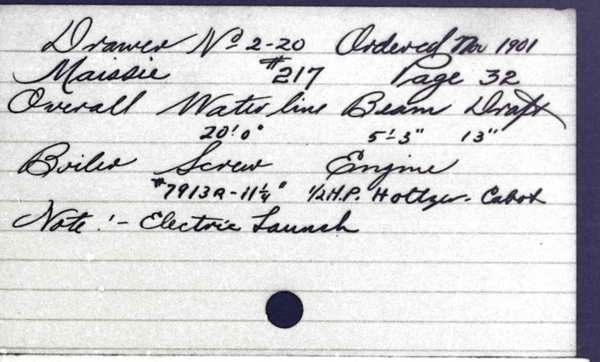 Drawer No 2-20 Ordered Nov 1901
Maissie #217 Page 32
Overall Water line Beam Draft
20'0" 5'-3" 13"
Boiler Screw Engine
#7913A-11¼" ½H.P. Holtzer-Cabot
Note:- Electric Launch